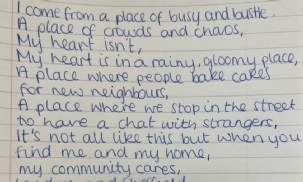 I come from a place of busy and bustle.
A place of crowds and chaos,
My heart isn't,
My heart is in a rainy, gloomy place,
A place where people bake cakes
for new neighbours,
A place where we stop in the street
to have a chat with strangers,
It's not all like this but when you
find me and my home,
my community cares,